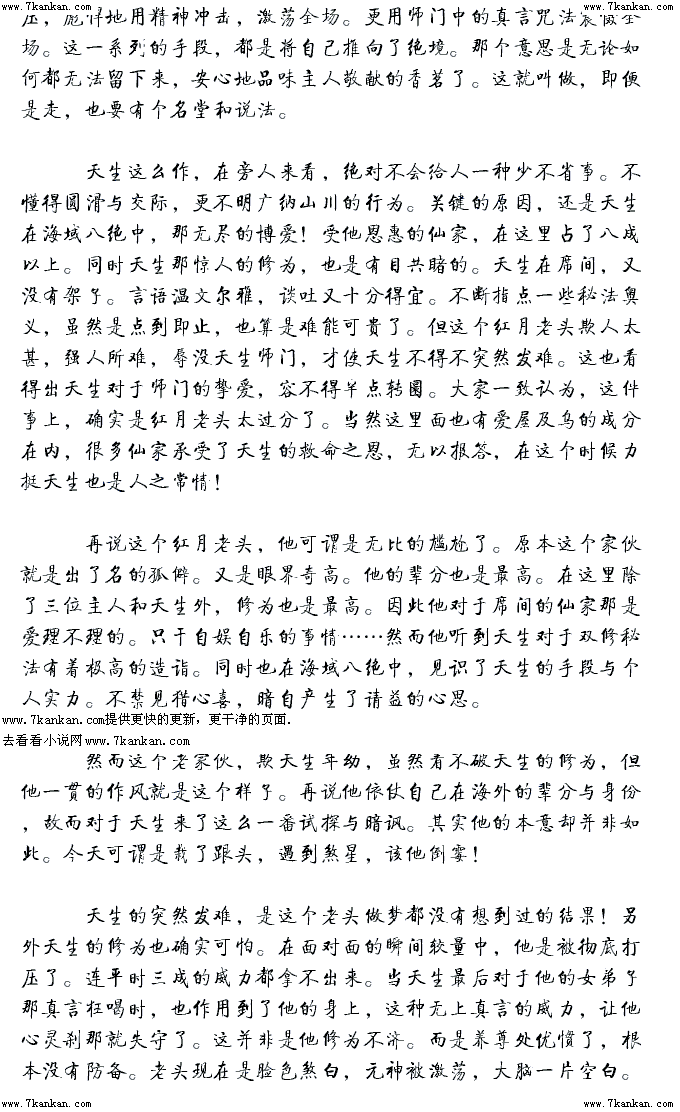 www.7kankan.com www.7kankan.com
压，彪悍地用精神冲击，激荡全场。更用师门中的真言咒法震慑全
场。这一系列的手段，都是将自己推向了绝境。那个意思是无论如
何都无法留下来，安心地品味主人敬献的香茗了。这就叫做，即便
是走，也要有个名堂和说法。
天生这么作，在旁人来看，绝对不会给人一种少不省事。不
懂得圆滑与交际，更不明广纳山川的行为。关键的原因，还是天生
在海域八绝中，那无尽的博爱！受他恩惠的仙家，在这里占了八成
以上。同时天生那惊人的修为，也是有目共暗的。天生在席间，又
没有架子。言语温文尔雅，谈吐又十分得宜。不断指点一些秘法奥
义，虽然是点到即止，也算是难能可贵了。但这个红月老头欺人太
甚，强人所难，辱没天生师门，才使天生不得不突然发难。这也看
得出天生对于师门的挚爱，容不得半点转圜。大家一致认为，这件
事上，确实是红月老头太过分了。当然这里面也有爱屋及乌的成分
在内，很多仙家承受了天生的救命之恩，无以报答，在这个时候力
挺天生也是人之常情！
再说这个红月老头，他可谓是无比的尴尬了。原本这个家伙
就是出了名的孤僻。又是眼界奇高。他的辈分也是最高。在这里除
了三位主人和天生外，修为也是最高。因此他对于席间的仙家那是
爱理不理的。只干自娱自乐的事情……然而他听到天生对于双修秘
法有着极高的造诣。同时也在海域八绝中，见识了天生的手段与个
人实力。不禁见猎心喜，暗自产生了请益的心思。
www.7kankan.com提供更快的更新，更干净的页面.
去看看小说网www.7kankan.com
然而这个老家伙，欺天生年幼，虽然看不破天生的修为，但
他一贯的作风就是这个样子。再说他依仗自己在海外的辈分与身份
，故而对于天生来了这么一番试探与暗讽。其实他的本意却并非如
此。今天可谓是栽了跟头，遇到煞星，该他倒霉！
天生的突然发难，是这个老头做梦都没有想到过的结果！另
外天生的修为也确实可怕。在面对面的瞬间较量中，他是被彻底打
压了。连平时三成的威力都拿不出来。当天生最后对于他的女弟子
那真言狂喝时，也作用到了他的身上，这种无上真言的威力，让他
心灵刹那就失守了。这并非是他修为不济。而是养尊处优惯了，根
本没有防备。老头现在是脸色煞白，元神被激荡，大脑一片空白。
www.7kankan.com www.7kankan.com